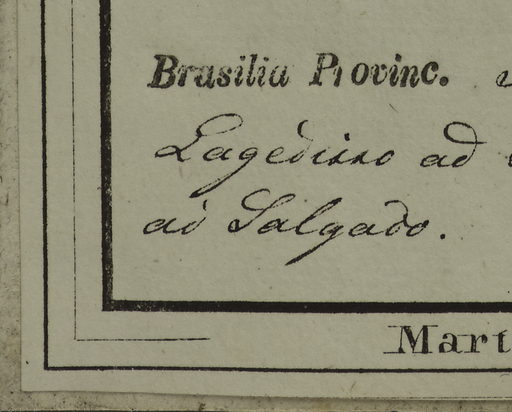 Brasilia Provinc.
Lagedisso ad
ad Salgado.
Mart